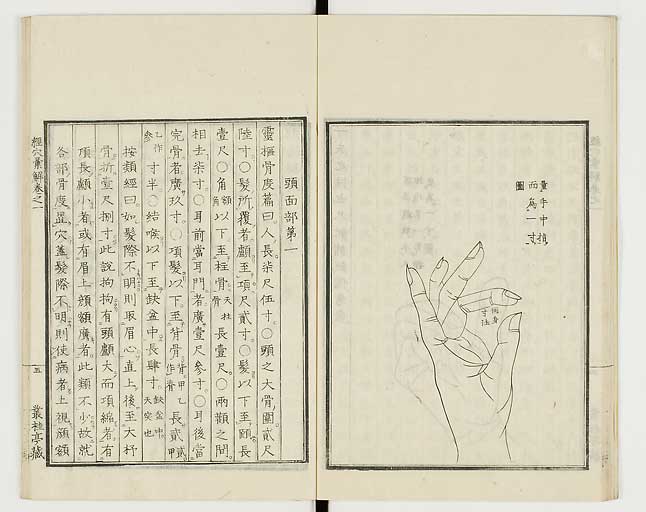 量手中指
而為一寸
圖
同身
寸法
頭面部第一
靈樞骨度篇曰人長柒尺伍寸○頭之大骨圍貳尺
陸寸○髮所覆者顱至項尺貳寸○髮以下至頤長
壹尺○角額以下至柱骨天柱骨長壹尺○兩顴之間
相去柒寸○耳前當耳門者廣壹尺參寸○耳後當
完骨者廣玖寸○項髮以下至背骨背甲乙作膂長貳甲
乙作參寸半○結喉以下至缺盆中長肆寸缺盆中天突也
按類經曰如髮際不明則取眉心直上後至大杼
骨折壹尺捌寸此說拘拘有頭顱大而項縮者有
項長顱小者或有眉上顏額廣者此類不少故就
各部骨度量穴蓋髮際不明則使病者上視顏額
經穴彙解卷之一
五
叢桂亭藏